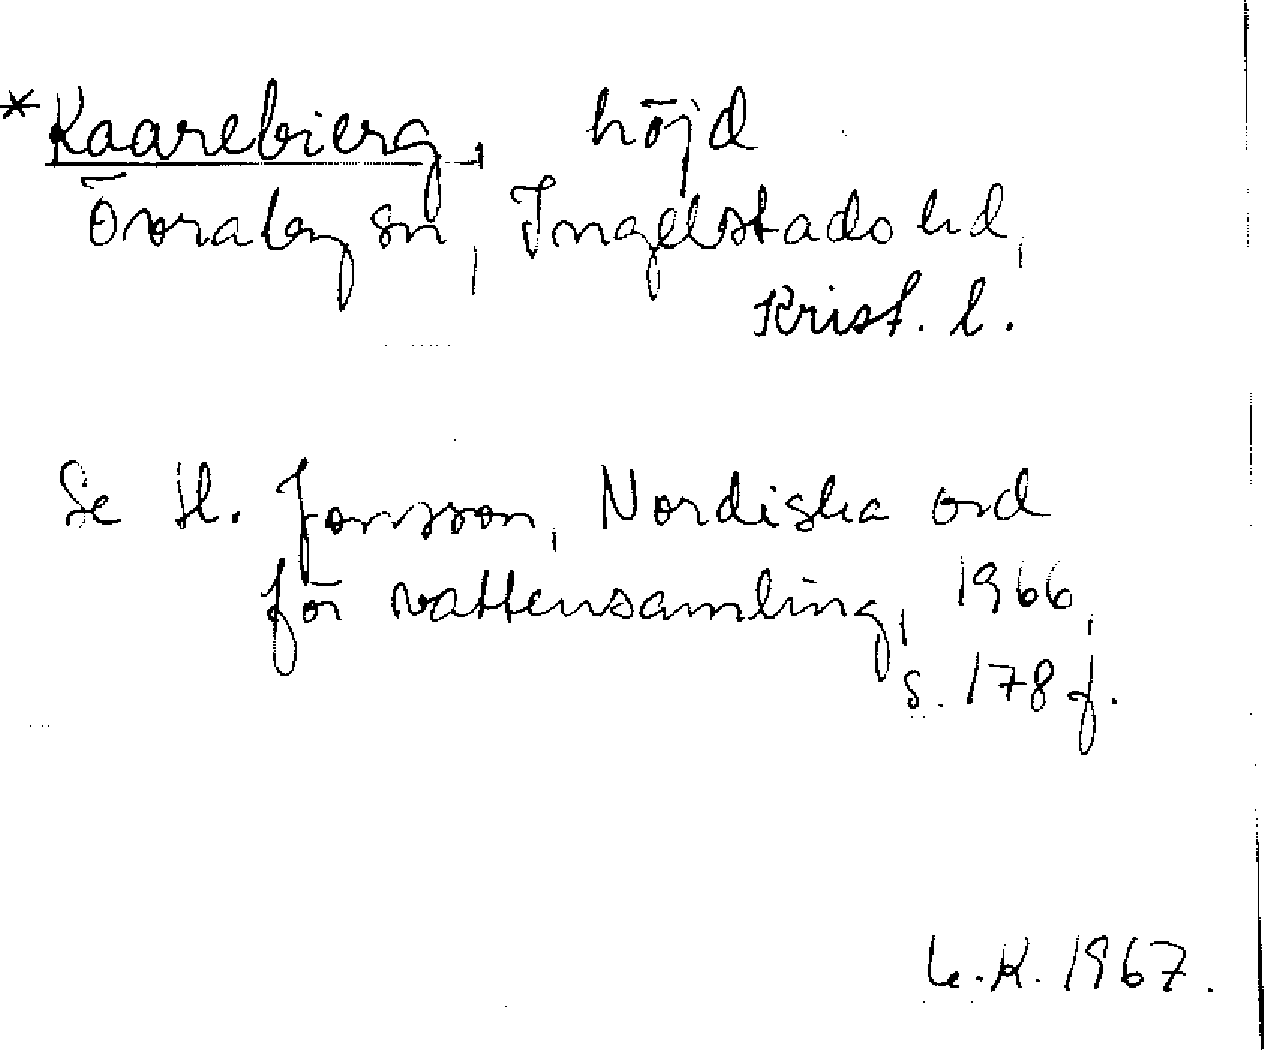 *Kaarebierg, höjd
Övraby sn, Ingelstads hd,
Krist. l.
Se H. Jonsson, Nordiska ord
för vattensamling, 1966,
s. 178 f.
L.K. 1967.